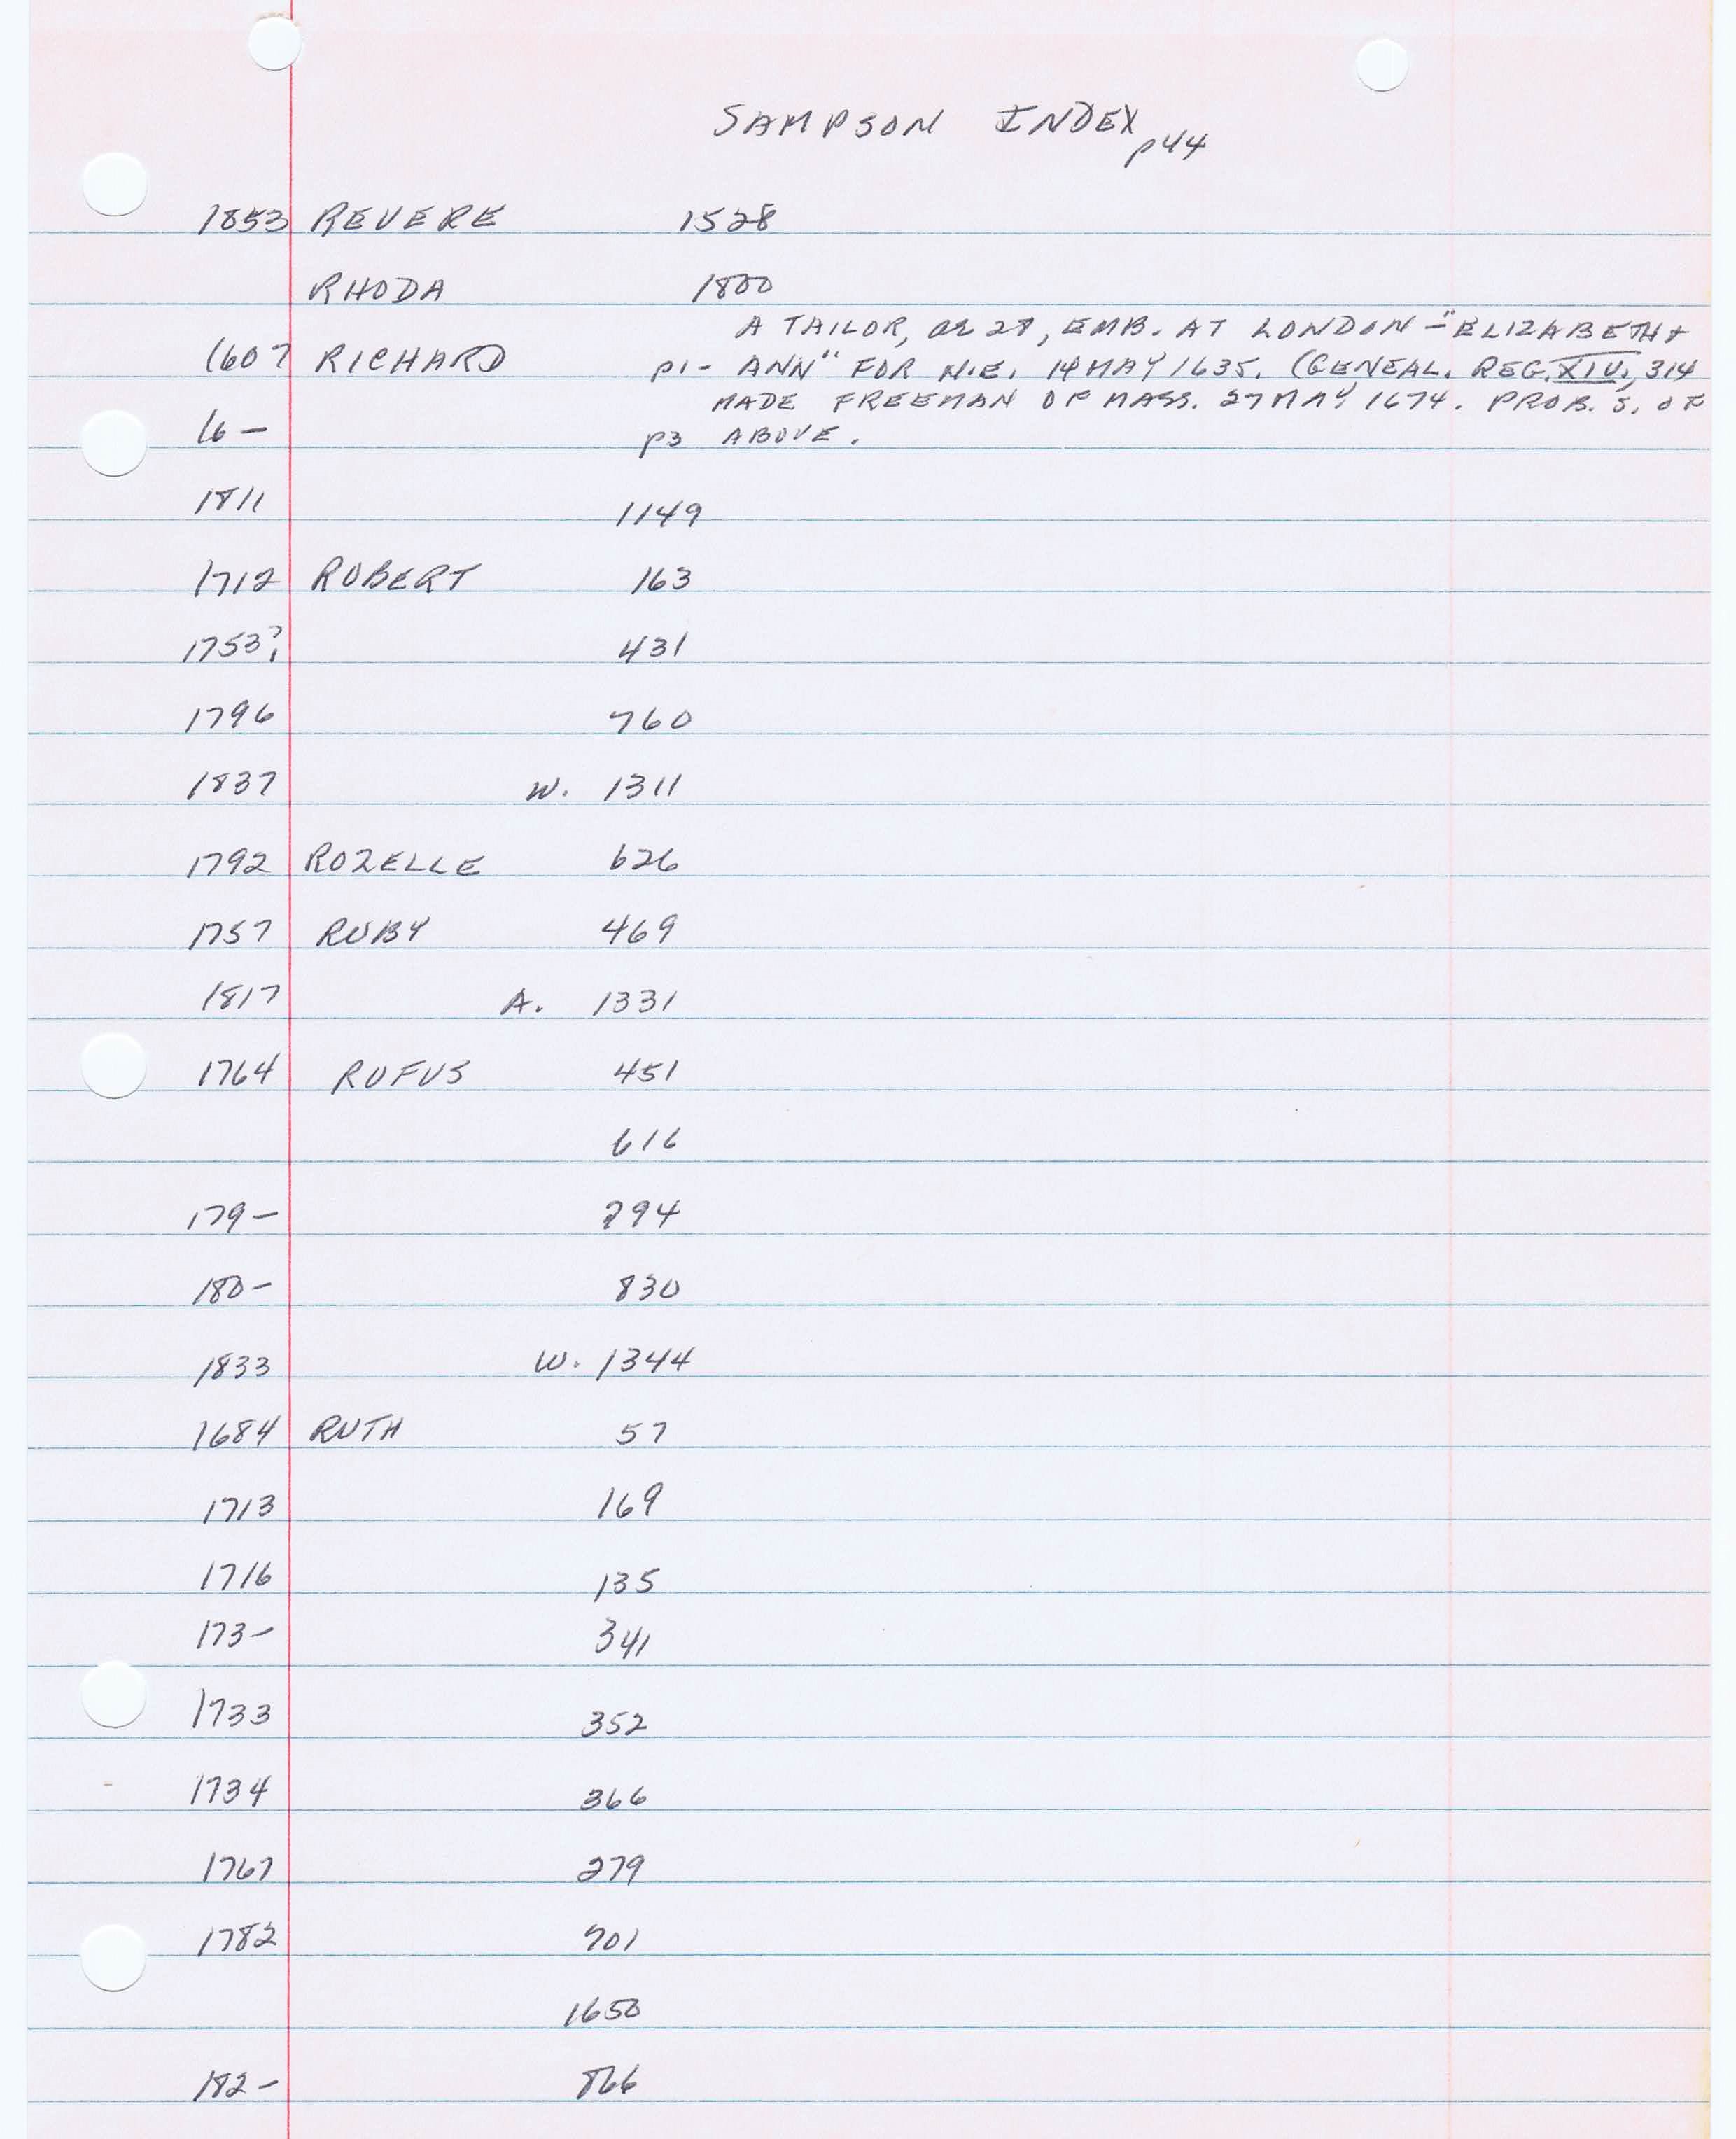 SAMPSON INDEX p44
1853 REVERE 1528
RHODA 1800
A TAILOR, ae 28, EMB. AT LONDON - "ELIZABETH &
1607 RICHARD p1- ANN" FOR N.E. 14 MAY 1635. (GENEAL. REG. XIV, 314
MADE FREEMAN OF MASS. 27 MAY 1674. PROB. S. OF
16- p3 ABOVE.
1811 1149
1712 ROBERT 163
1753? 431
1796 760
1837 W. 1311
1792 ROZELLE 626
1757 RUBY 469
1817 A. 1331
1764 RUFUS 451
616
179- 294
180- 830
1833 W. 1344
1684 RUTH 57
1713 169
1716 135
173- 341
1733 352
1734 366
1767 279
1782 701
1650
182- 866